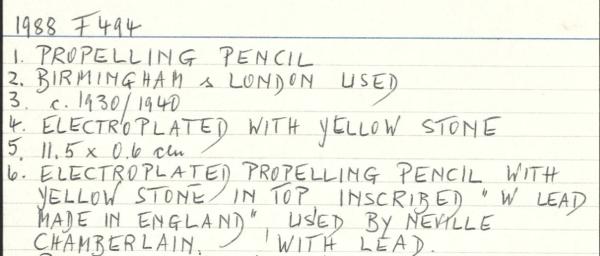 1988 F494
1. PROPELLING PENCIL
2. BIRMINGHAM & LONDON USED
3. c. 1930/1940
4. ELECTROPLATED WITH YELLOW STONE
5. 11.5 x 0.6 cm
6. ELECTROPLATED PROPELLING PENCIL WITH
YELLOW STONE IN TOP, INSCRIBED "W LEAD
MADE IN ENGLAND" USED BY NEVILLE
CHAMBERLAIN. WITH LEAD.